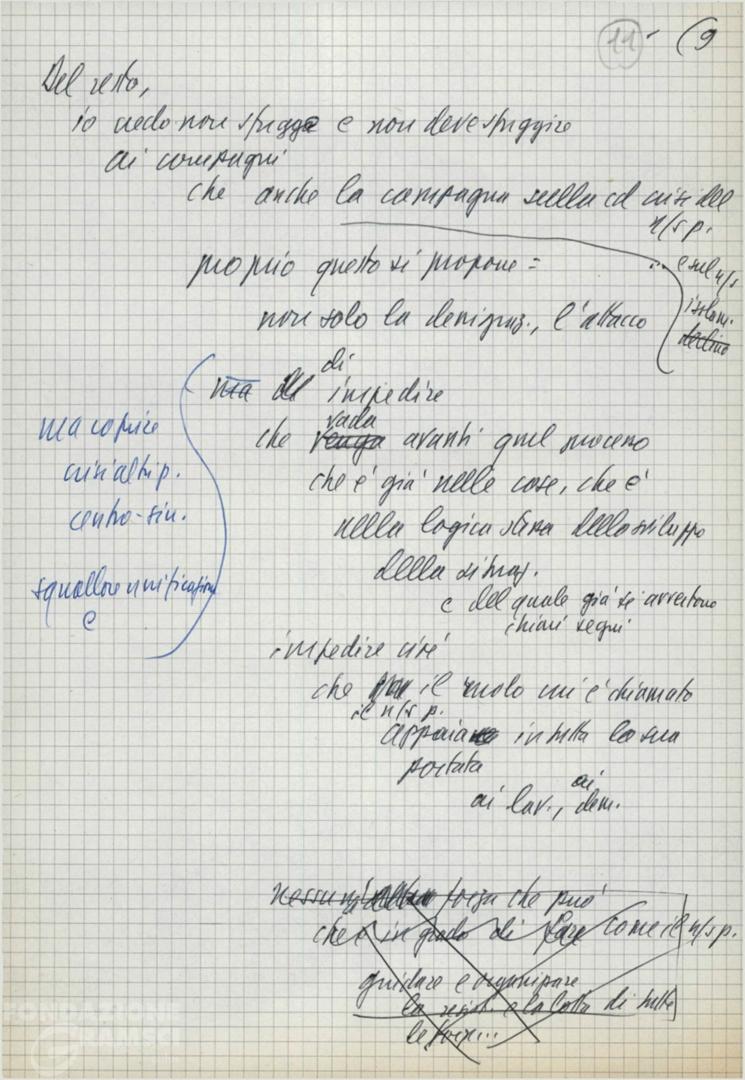 11 (9
Del resto,
io credo non sfugga e non deve sfuggire
ai compagni
che anche la campagna sulla cd crisi del
n/s p.
... e sul n/s
isolam.
declino
proprio questo si propone =
non solo la denigraz., l'attacco
ma di impedire
ma coprire
crisi altri p.
centro-sin.
squallore unificazione
e
che venga vada avanti quel processo
che è già nelle cose, che è
nella logica stessa dello sviluppo
della situaz.
e del quale già si avvertono
chiari segni
impedire cioè
che il ruolo cui è chiamato
il n/s p.
appaia in tutta la sua
portata
ai lav., ai dem.
forza che può
che è in grado di fare come il n/s p.
guidare e organizzare
la resist. e la lotta di tutte
le forze...
FONDAZIONE
GRAMSCI